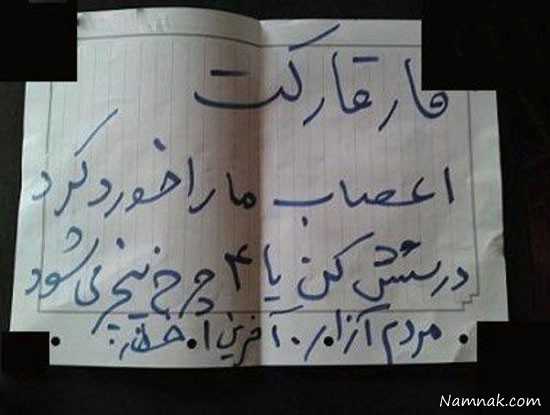 قار قارکت
اعصاب ما را خورد کرد
درستش کن یا ۴ چرخ پنچر می شود
مردم آزار. آخرین اخطار.
Namnak.com